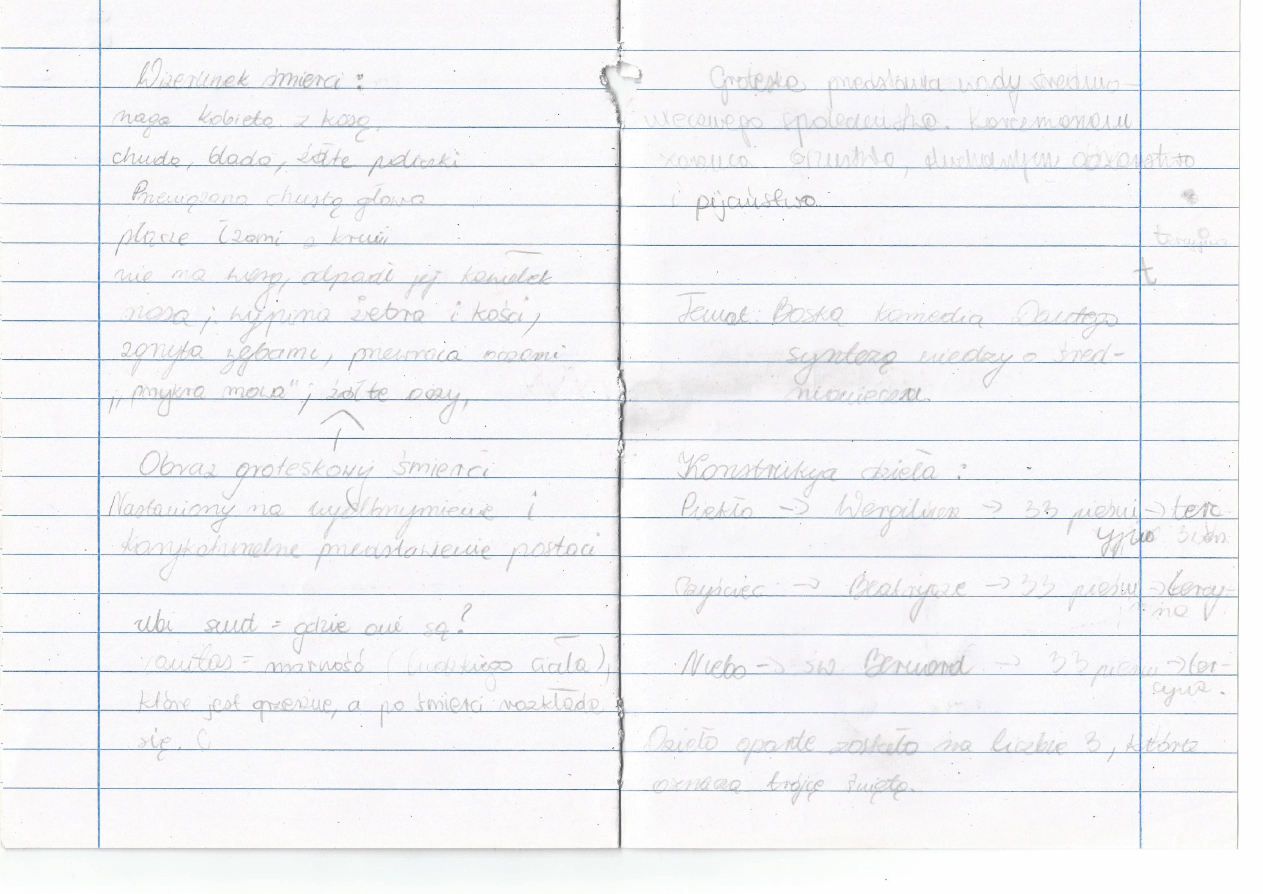 Wizerunek śmierci:
naga kobieta z kosą.
chuda, blada, żółte policzki
Przewiązana chustą głowa
płacze łzami z krwi
nie ma warg, odpadł jej kawałek
nosa; wypina żebra i kości,
zgrzyta zębami, przewraca oczami
"przykra mowa"; żółte oczy,
Obraz groteskowy śmierci
Nastawiony na wyolbrzymienie i
karykaturalne przedstawienie postaci
ubi sunt = gdzie oni są?
vanitas = marność (ludzkiego ciała),
które jest grzeszne, a po śmierci rozkłada
się. (
Groteska przedstawia wady średnio-
wiecznego społeczeństwa. Karczmarzom
zarzuca oszustwo, duchownym obżarstwo
i pijaństwo.
tercyna
t
Temat: Boska Komedia Dantego
syntezą wiedzy o śred-
niowieczu.
Konstrukcja dzieła:
Piekło -> Wergiliusz -> 33 pieśni -> terc-
yna
Czyściec -> Beatrycze -> 33 pieśni -> tercy-
na
Niebo -> św. Bernard -> 33 pieśni -> ter-
cyna.
Dzieło oparte zostało na liczbie 3, która
oznacza trójcę świętą.